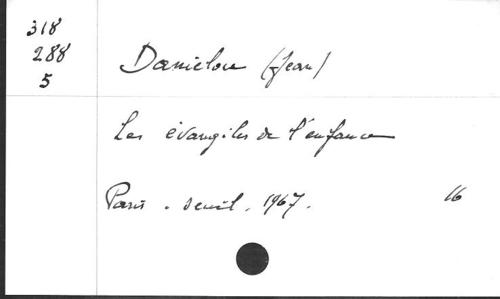 318
288
5
Danielou (Jean)
Les évangiles de l'enfance
Paris. seuil. 1967.
16